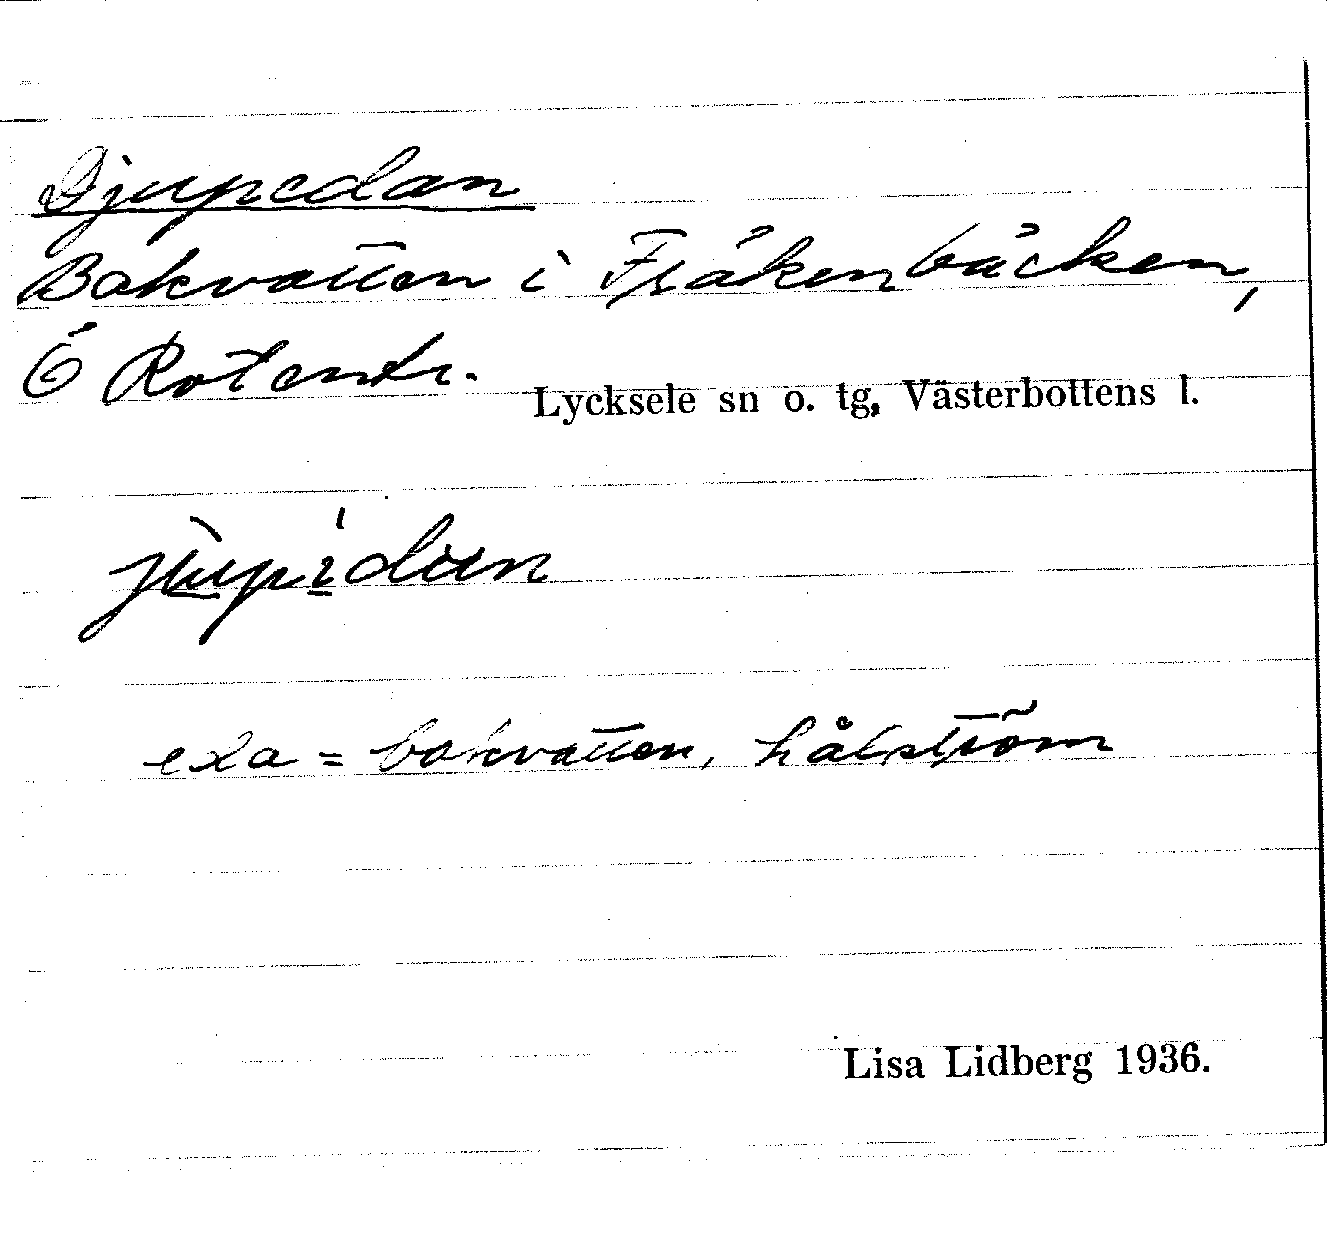 Djupedan
Bakvatten i Fräkenbäcken,
Ö Rotentr.
Lycksele sn o. tg, Västerbottens l.
eda = bakvatten, hålström
Lisa Lidberg 1936.